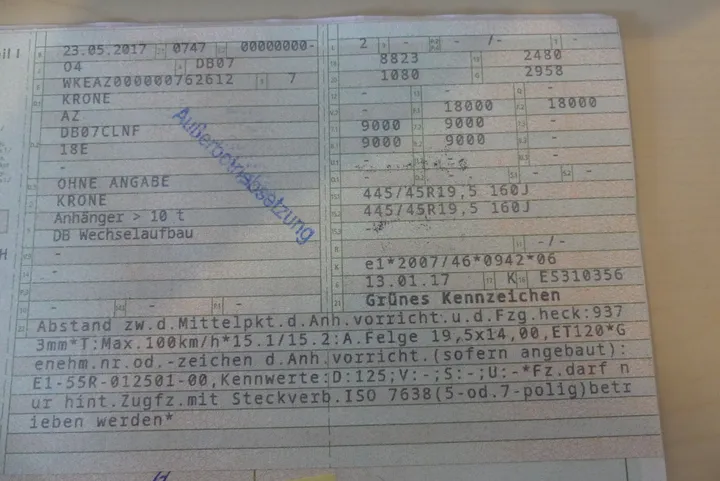 23.05.2017 0747 00000000-
04 DB07
WKEAZ000000762612 7
KRONE
AZ
DB07CLNF
18E
-
OHNE ANGABE
KRONE
Anhänger > 10 t
DB Wechselaufbau
-
-
- -
Außerbetriebsetzung
2 - - / -
8823 2480
1080 2958
- - -
- 18000 18000
9000 9000 -
9000 9000 -
- - -
- - - -
445/45R19,5 160J
445/45R19,5 160J
-
- -/-
e1*2007/46*0942*06
13.01.17 K ES310356
Grünes Kennzeichen
Abstand zw.d.Mittelpkt.d.Anh.vorricht.u.d.Fzg.heck:937
3mm*T:Max.100km/h*15.1/15.2:A.Felge 19,5x14,00,ET120*G
enehm.nr.od.-zeichen d.Anh.vorricht.(sofern angebaut):
E1-55R-012501-00,Kennwerte:D:125;V:-;S:-;U:-*Fz.darf n
ur hint.Zugfz.mit Steckverb.ISO 7638(5-od.7-polig)betr
ieben werden*